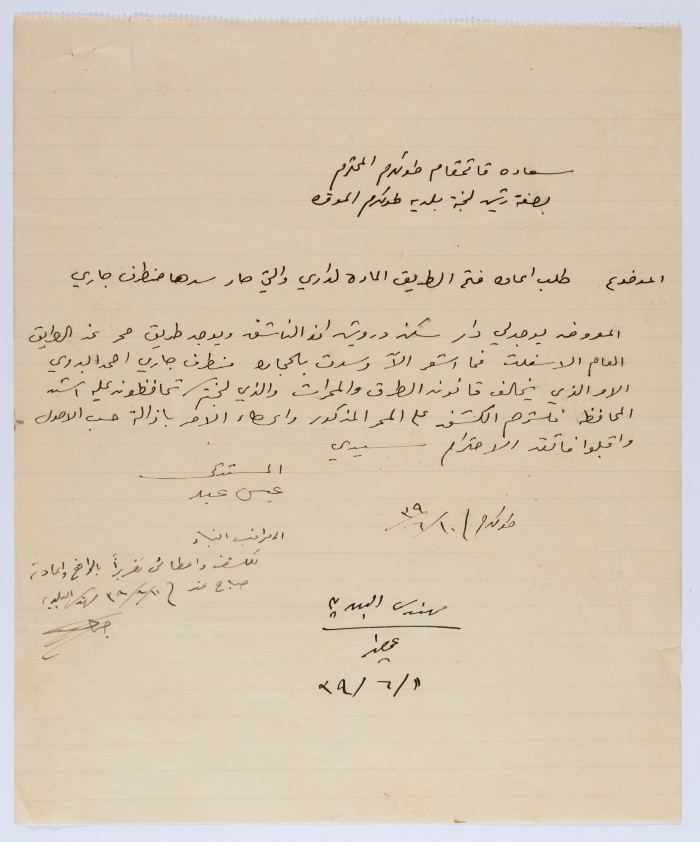 سعادة قائمقام طولكرم المحترم
بصفة رئيس لجنة بلدية طولكرم الموقره
الموضوع طلب اعادة فتح الطريق الماره لداري والتي صار سدها من طرف جاري
المعروض يوجد لي دار سكن دروش ابو الناشف ويوجد طريق ممر عن الطريق
العام الاسفلت فما اشعر الآ وسدت بالحجاره من طرف جاري احمد البدري
الامر الذي يخالف قانون الطرق والممرات والذي لجنتكم تحافظون عليه اشد
المحافظه فلتسترحم الكشف على الممر المذكور واعطاء الامر بازالة حسب الاصول
واقبلوا فائق الاحترام سيدي
المستدعي
عيسى عبد
طولكرم / ١٠/٦/٣٩
المراقب البناء
للكشف واعطائي تقريراً بالواقع واعادته
صباح غد / ١١/٦/٣٩ مهندس البلديه
مهندس البلديه
١١/٦/٣٩